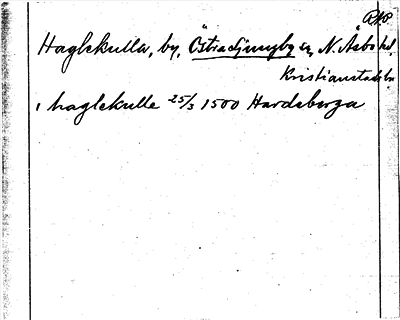 Haglekulla, by, Östra Ljungby sn, N. Åsbo hd.
Kristianstads län
i haglekulle 25/3 1500 Hardeberga